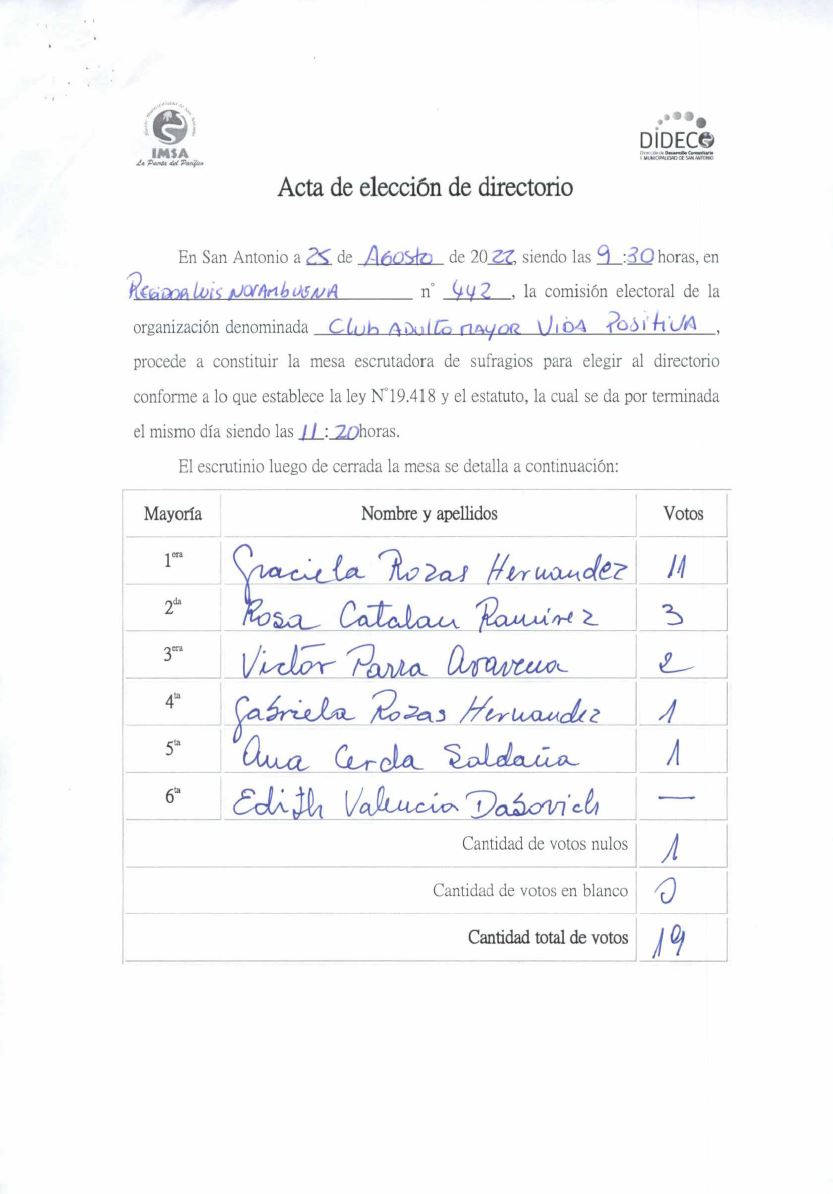 IMSA
La Puerta del Pacífico
DIDECO
Dirección de Desarrollo Comunitario
I. MUNICIPALIDAD DE SAN ANTONIO
Acta de elección de directorio
En San Antonio a 25 de Agosto de 2022, siendo las 9:30 horas, en
Regidor Luis Norambuena n° 442, la comisión electoral de la
organización denominada Club Adulto Mayor Vida Positiva,
procede a constituir la mesa escrutadora de sufragios para elegir al directorio
conforme a lo que establece la ley N°19.418 y el estatuto, la cual se da por terminada
el mismo día siendo las 11:20 horas.
El escrutinio luego de cerrada la mesa se detalla a continuación:
Mayoría Nombre y apellidos Votos
1era Graciela Rozas Hernandez 11
2da Rosa Catalan Ramirez 3
3era Victor Parra Aravena 2
4ta Gabriela Rozas Hernandez 1
5ta Ana Cerda Saldaña 1
6ta Edith Valencia Dabovich —
Cantidad de votos nulos 1
Cantidad de votos en blanco 0
Cantidad total de votos 19